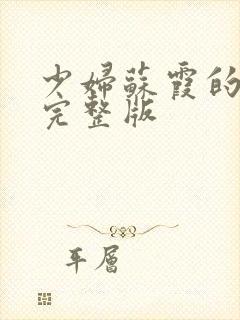 少婦蘇霞的
完整版
平層